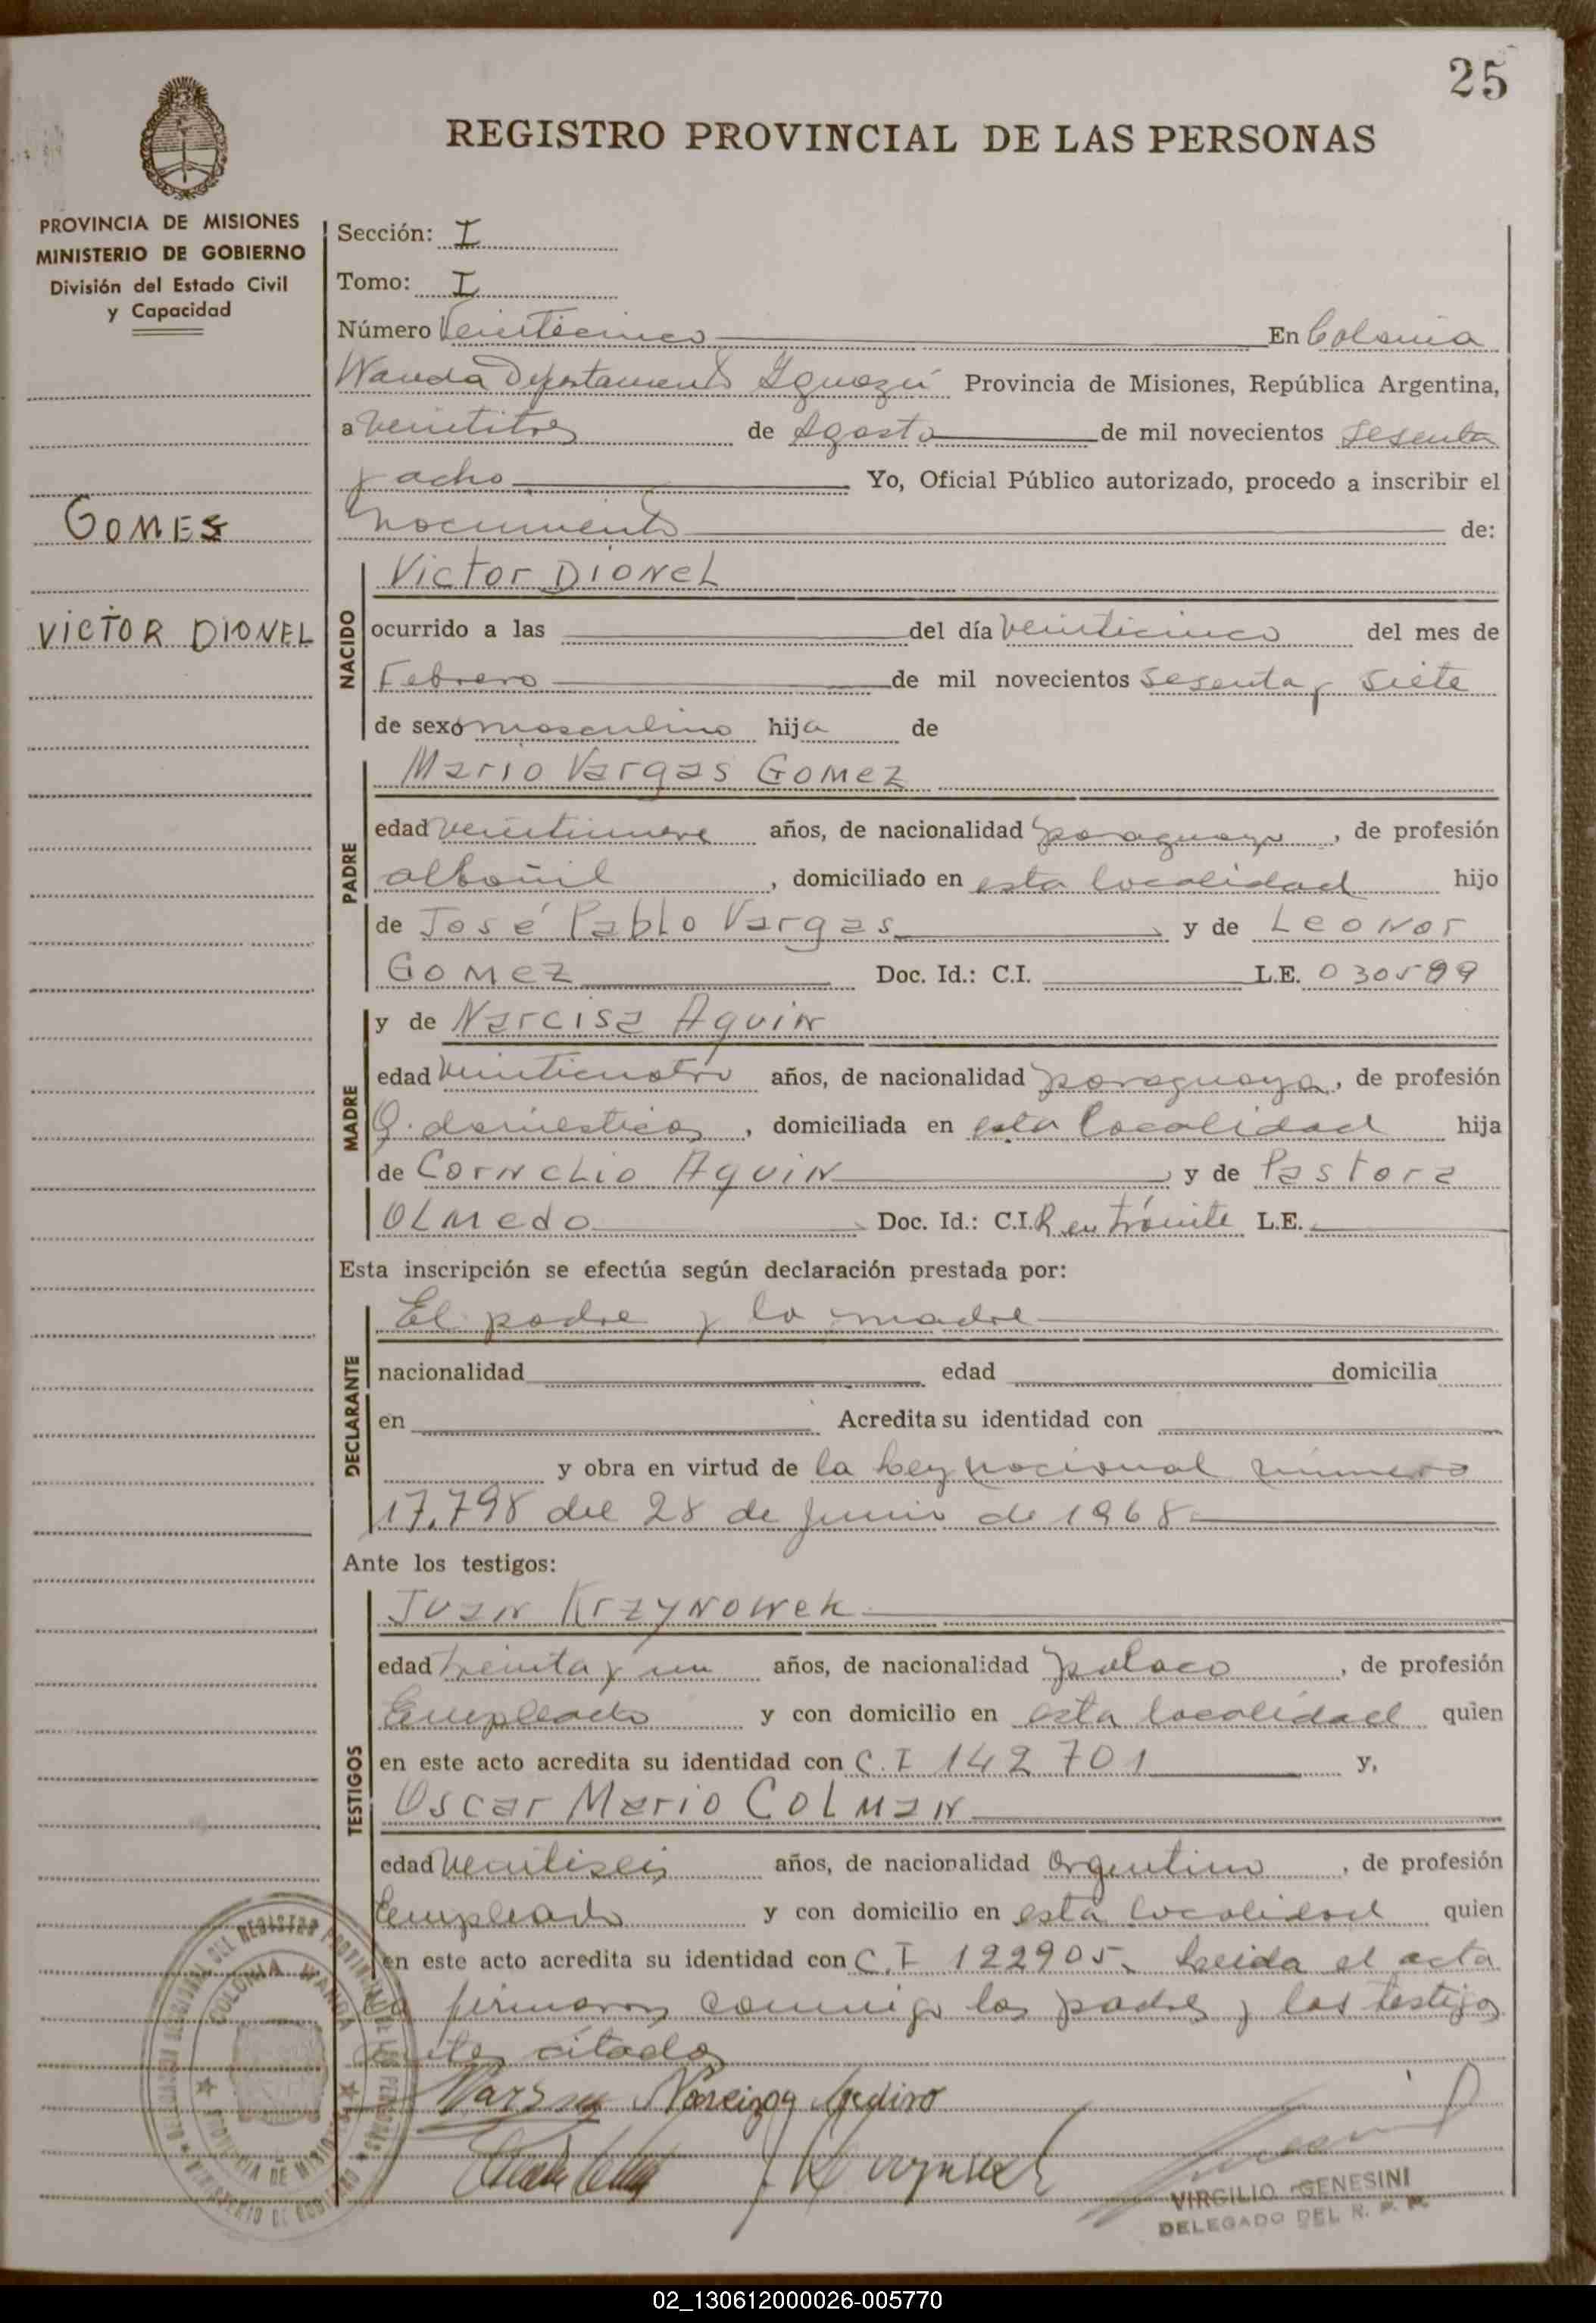 25
REGISTRO PROVINCIAL DE LAS PERSONAS
PROVINCIA DE MISIONES
MINISTERIO DE GOBIERNO
División del Estado Civil
y Capacidad
GOMES
VICTOR DIONEL
Sección: I
Tomo: I
Número Veinticinco En Colonia
Wanda Departamento Iguazú Provincia de Misiones, República Argentina,
a veintitres de Agosto de mil novecientos sesenta
y ocho Yo, Oficial Público autorizado, procedo a inscribir el
nacimiento de:
NACIDO
Victor DIONEL
ocurrido a las del día veinticinco del mes de
Febrero de mil novecientos sesenta y siete
de sexo masculino hija de
PADRE
Mario Vargas GOMEZ
edad veintinueve años, de nacionalidad paraguayo, de profesión
albañil, domiciliado en esta localidad hijo
de José Pablo Vargas y de LEONOR
GOMEZ Doc. Id.: C.I. L.E. 030599
MADRE
y de Narcisa AQUIN
edad veinticuatro años, de nacionalidad paraguaya, de profesión
Q. domésticos, domiciliada en esta localidad hija
de CORNELIO AQUIN y de Pastora
OLMEDO Doc. Id.: C.I. R en trámite L.E.
Esta inscripción se efectúa según declaración prestada por:
DECLARANTE
El padre y la madre
nacionalidad edad domicilia
en Acredita su identidad con
y obra en virtud de la Ley nacional número
17.798 del 28 de Junio de 1968
Ante los testigos:
TESTIGOS
JUAN KRZYNOWEK
edad treinta y un años, de nacionalidad polaco, de profesión
Empleado y con domicilio en esta localidad quien
en este acto acredita su identidad con C.I 142701 y,
Oscar Mario COLMAN
edad veintiseis años, de nacionalidad Argentino, de profesión
Empleado y con domicilio en esta localidad quien
en este acto acredita su identidad con C.I 122905. Leida el acta
la firmaron conmigo los padres y los testigos
antes citados
COLONIA WANDA
VIRGILIO GENESINI
DELEGADO DEL R. P. P.
02_130612000026-005770